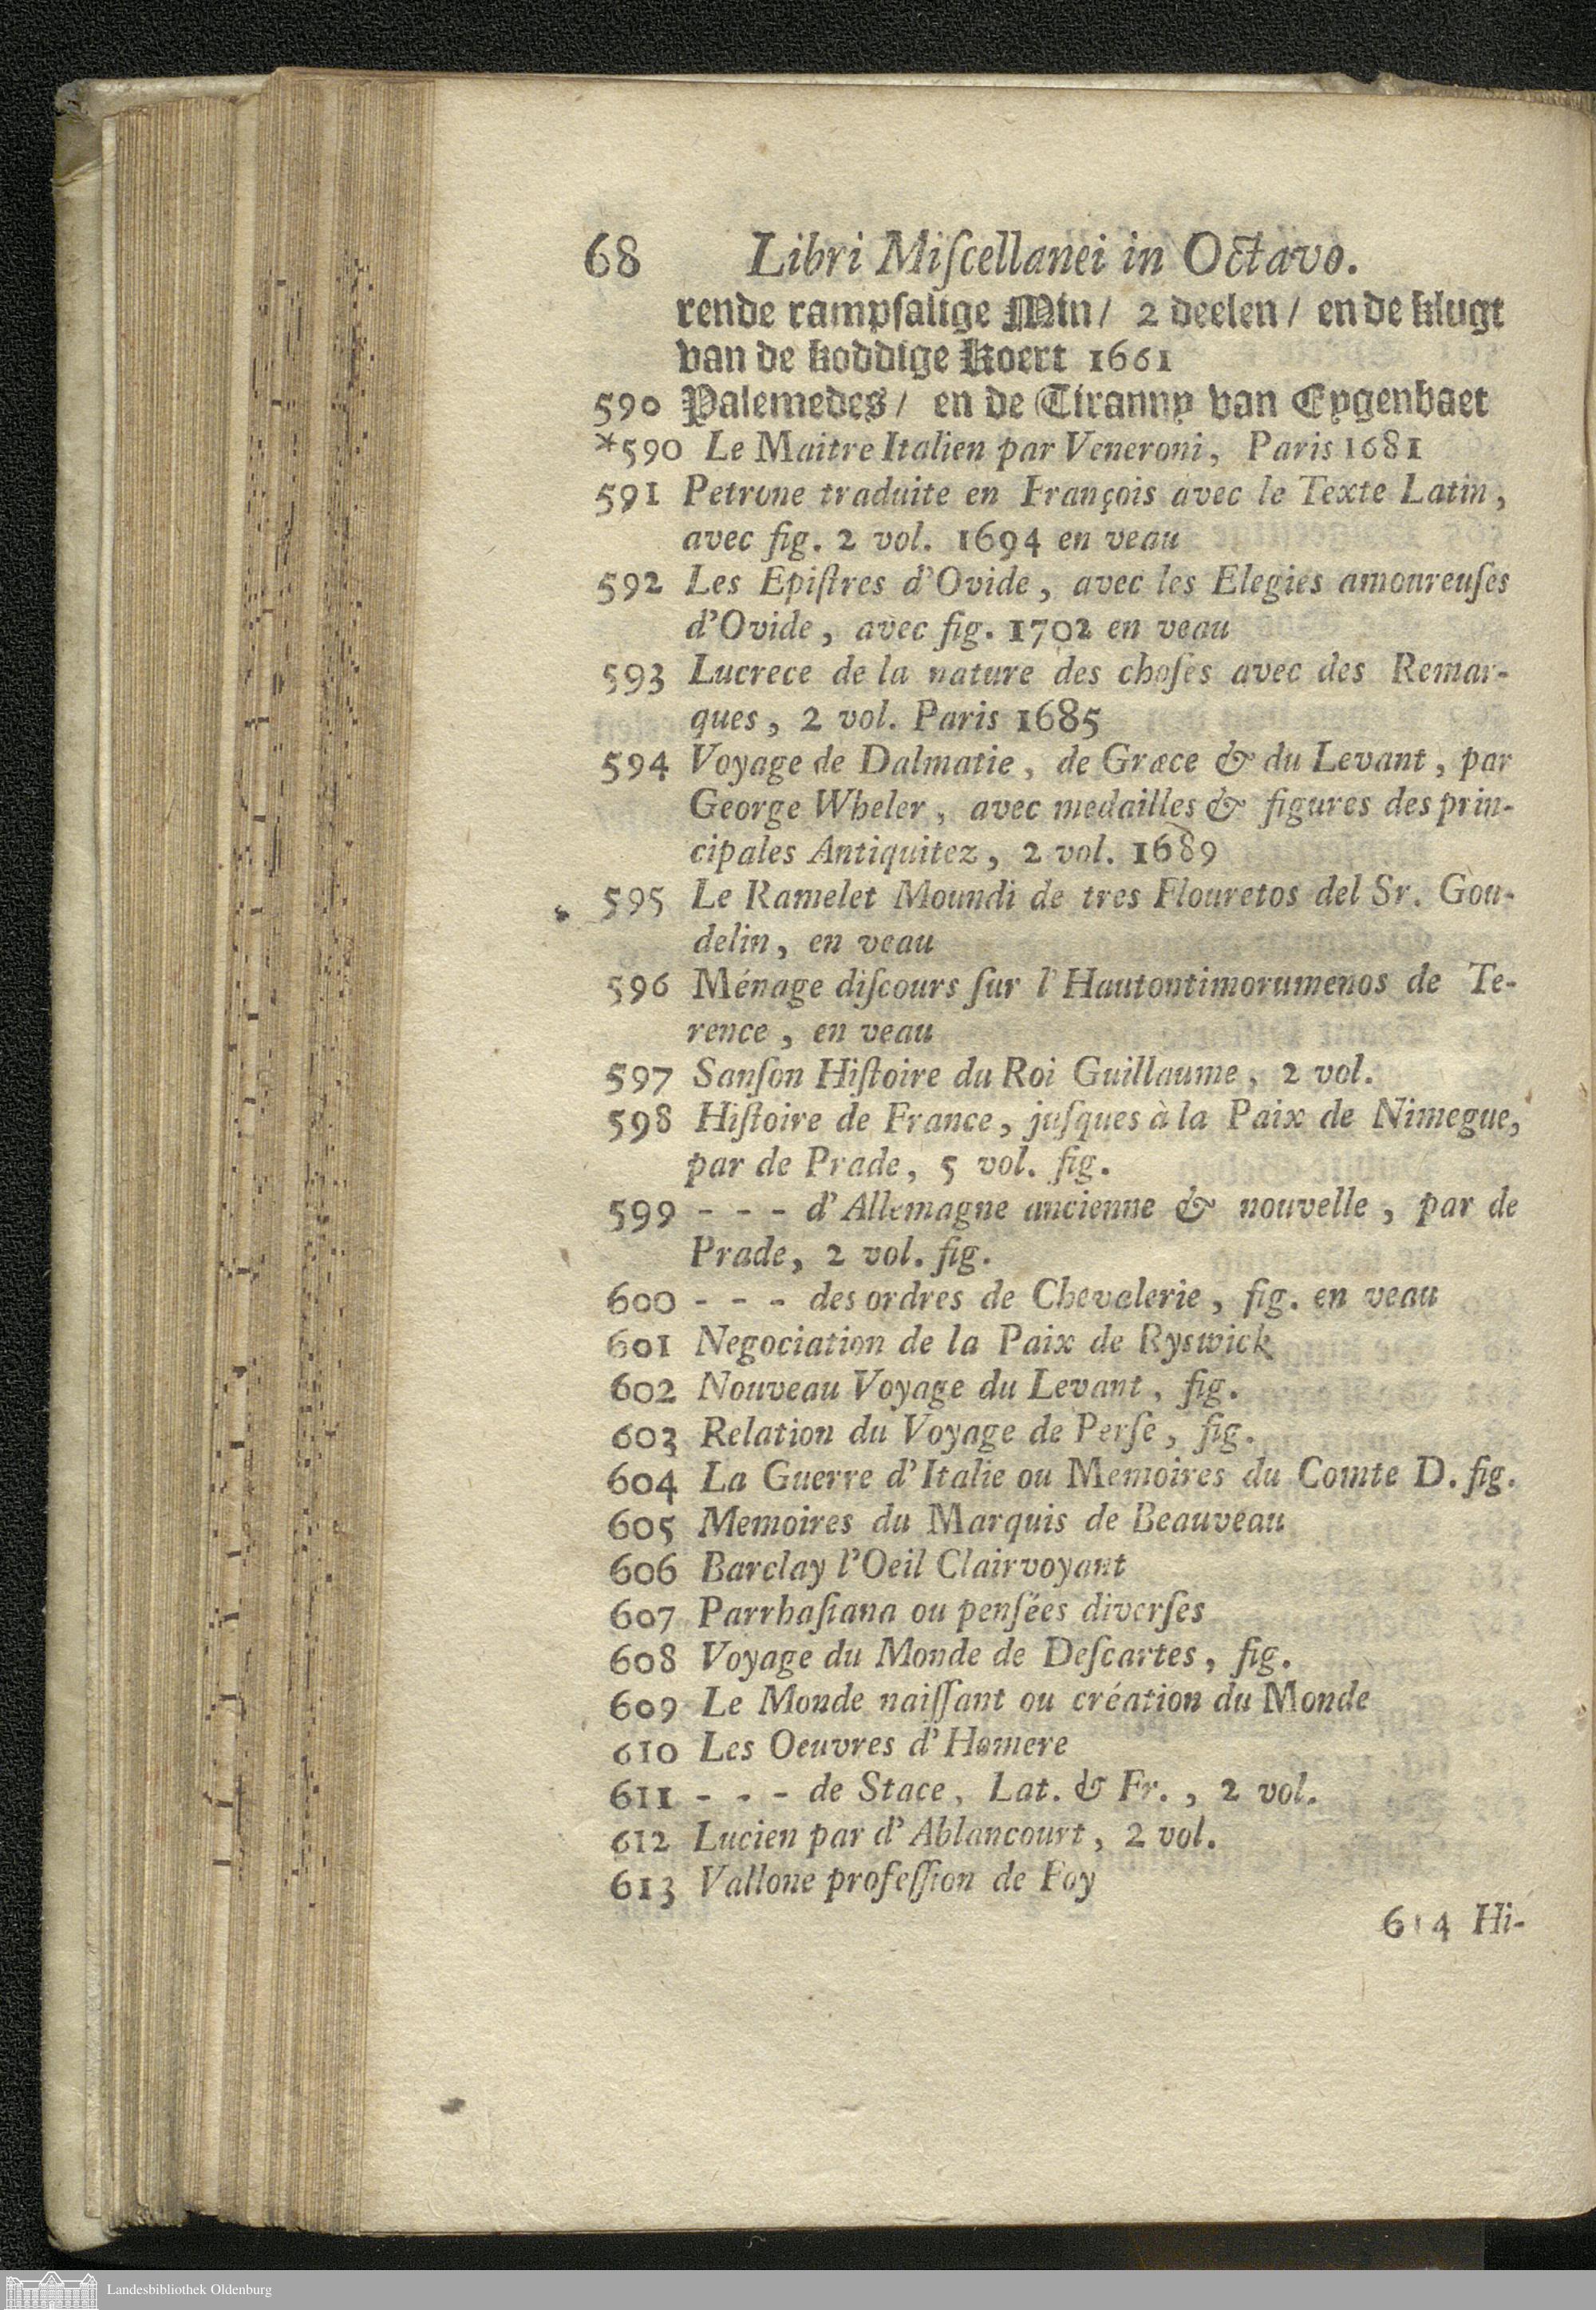 68 Libri Miſcellanei in Octavo.
rende rampſalige Min/ 2 deelen/ en de klugt
van de koddige Koert 1661
590 Palemedes/ en de Tiranny van Eygenbaet
*590 Le Maitre Italien par Veneroni, Paris 1681
591 Petrone traduite en François avec le Texte Latin,
avec fig. 2 vol. 1694 en veau
592 Les Epiſtres d'Ovide, avec les Elegies amoureuſes
d'Ovide, avec fig. 1702 en veau
593 Lucrece de la nature des choſes avec des Remar-
ques, 2 vol. Paris 1685
594 Voyage de Dalmatie, de Græce & du Levant, par
George Wheler, avec medailles & figures des prin-
cipales Antiquitez, 2 vol. 1689
595 Le Ramelet Moundi de tres Flouretos del Sr. Gou-
delin, en veau
596 Ménage diſcours ſur l'Hautontimorumenos de Te-
rence, en veau
597 Sanſon Hiſtoire du Roi Guillaume, 2 vol.
598 Hiſtoire de France, juſques à la Paix de Nimegue,
par de Prade, 5 vol. fig.
599 - - - d'Allemagne ancienne & nouvelle, par de
Prade, 2 vol. fig.
600 - - - des ordres de Chevalerie, fig. en veau
601 Negociation de la Paix de Ryswick
602 Nouveau Voyage du Levant, fig.
603 Relation du Voyage de Perſe, fig.
604 La Guerre d'Italie ou Memoires du Comte D. fig.
605 Memoires du Marquis de Beauveau
606 Barclay l'Oeil Clairvoyant
607 Parrhaſiana ou penſées diverſes
608 Voyage du Monde de Deſcartes, fig.
609 Le Monde naiſſant ou création du Monde
610 Les Oeuvres d'Homere
611 - - - de Stace, Lat. & Fr., 2 vol.
612 Lucien par d'Ablancourt, 2 vol.
613 Vallone profeſſion de Foy
614 Hi-
Landesbibliothek Oldenburg